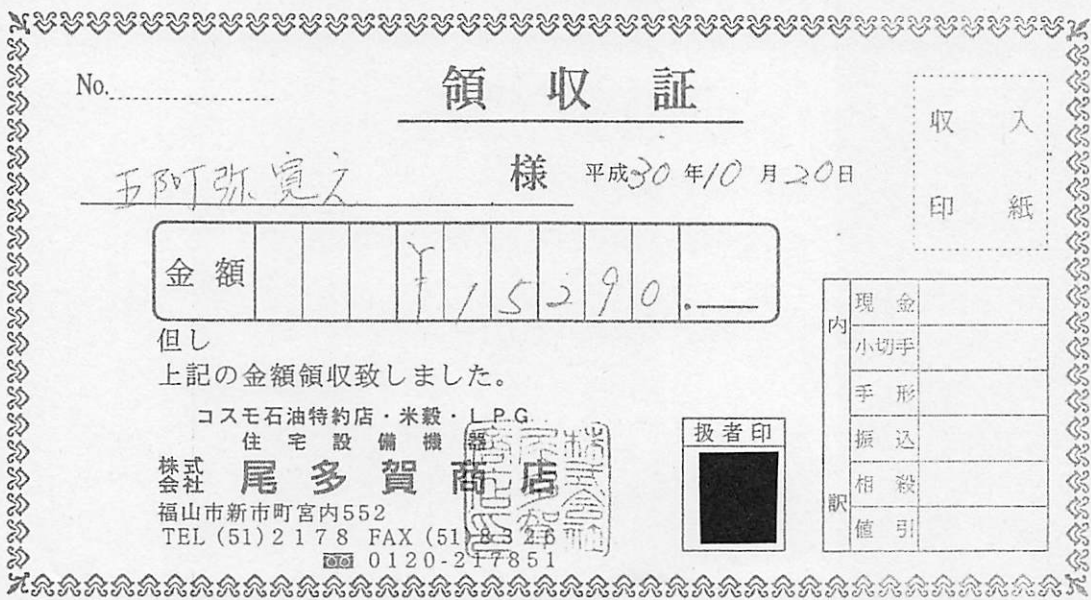 No.
領収証
収入
印紙
五阿弥寛之 様
平成30年10月20日
金額 ¥15290.―
但し
上記の金額領収致しました。
コスモ石油特約店・米穀・LPG
住宅設備機器
株式会社 尾多賀商店
福山市新市町宮内552
TEL (51)2178 FAX (51)8326
0120-217851
扱者印
内訳
現金
小切手
手形
振込
相殺
値引